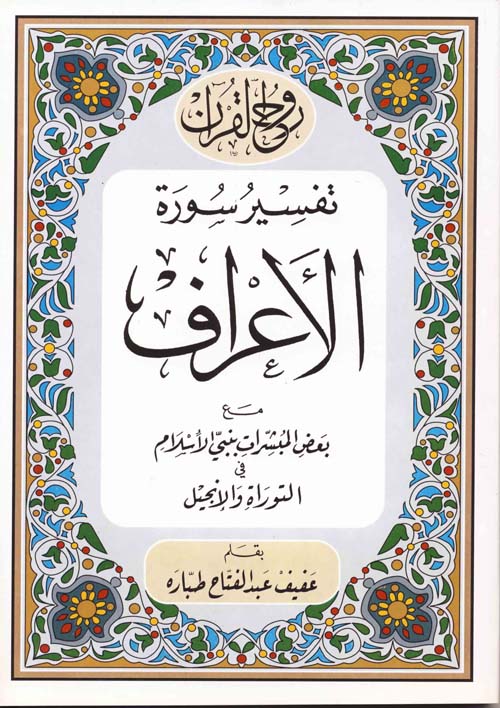 روح القرآن
تفسير سورة
الأعراف
مع
بعض المبشرات بنبي الإسلام
في
التوراة والإنجيل
بقلم
عفيف عبد الفتاح طباره